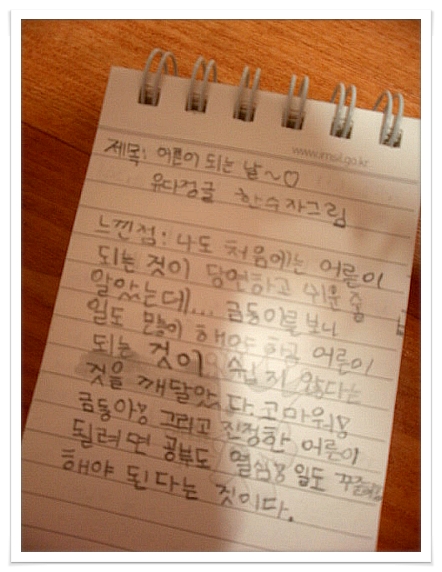 www.mol.go.kr
제목: 어른이 되는 날~♡
유다정글 한수자그림
느낀점: 나도 처음에는 어른이
되는 것이 당연하고 쉬운 줄
알았는데... 금동이를 보니
일도 많이 해야 하고 어른이
되는 것이 쉽지 않다는
것을 깨달았다. 고마워!
금동아! 그리고 진정한 어른이
될려면 공부도 열심! 일도
해야 된다는 것이다.